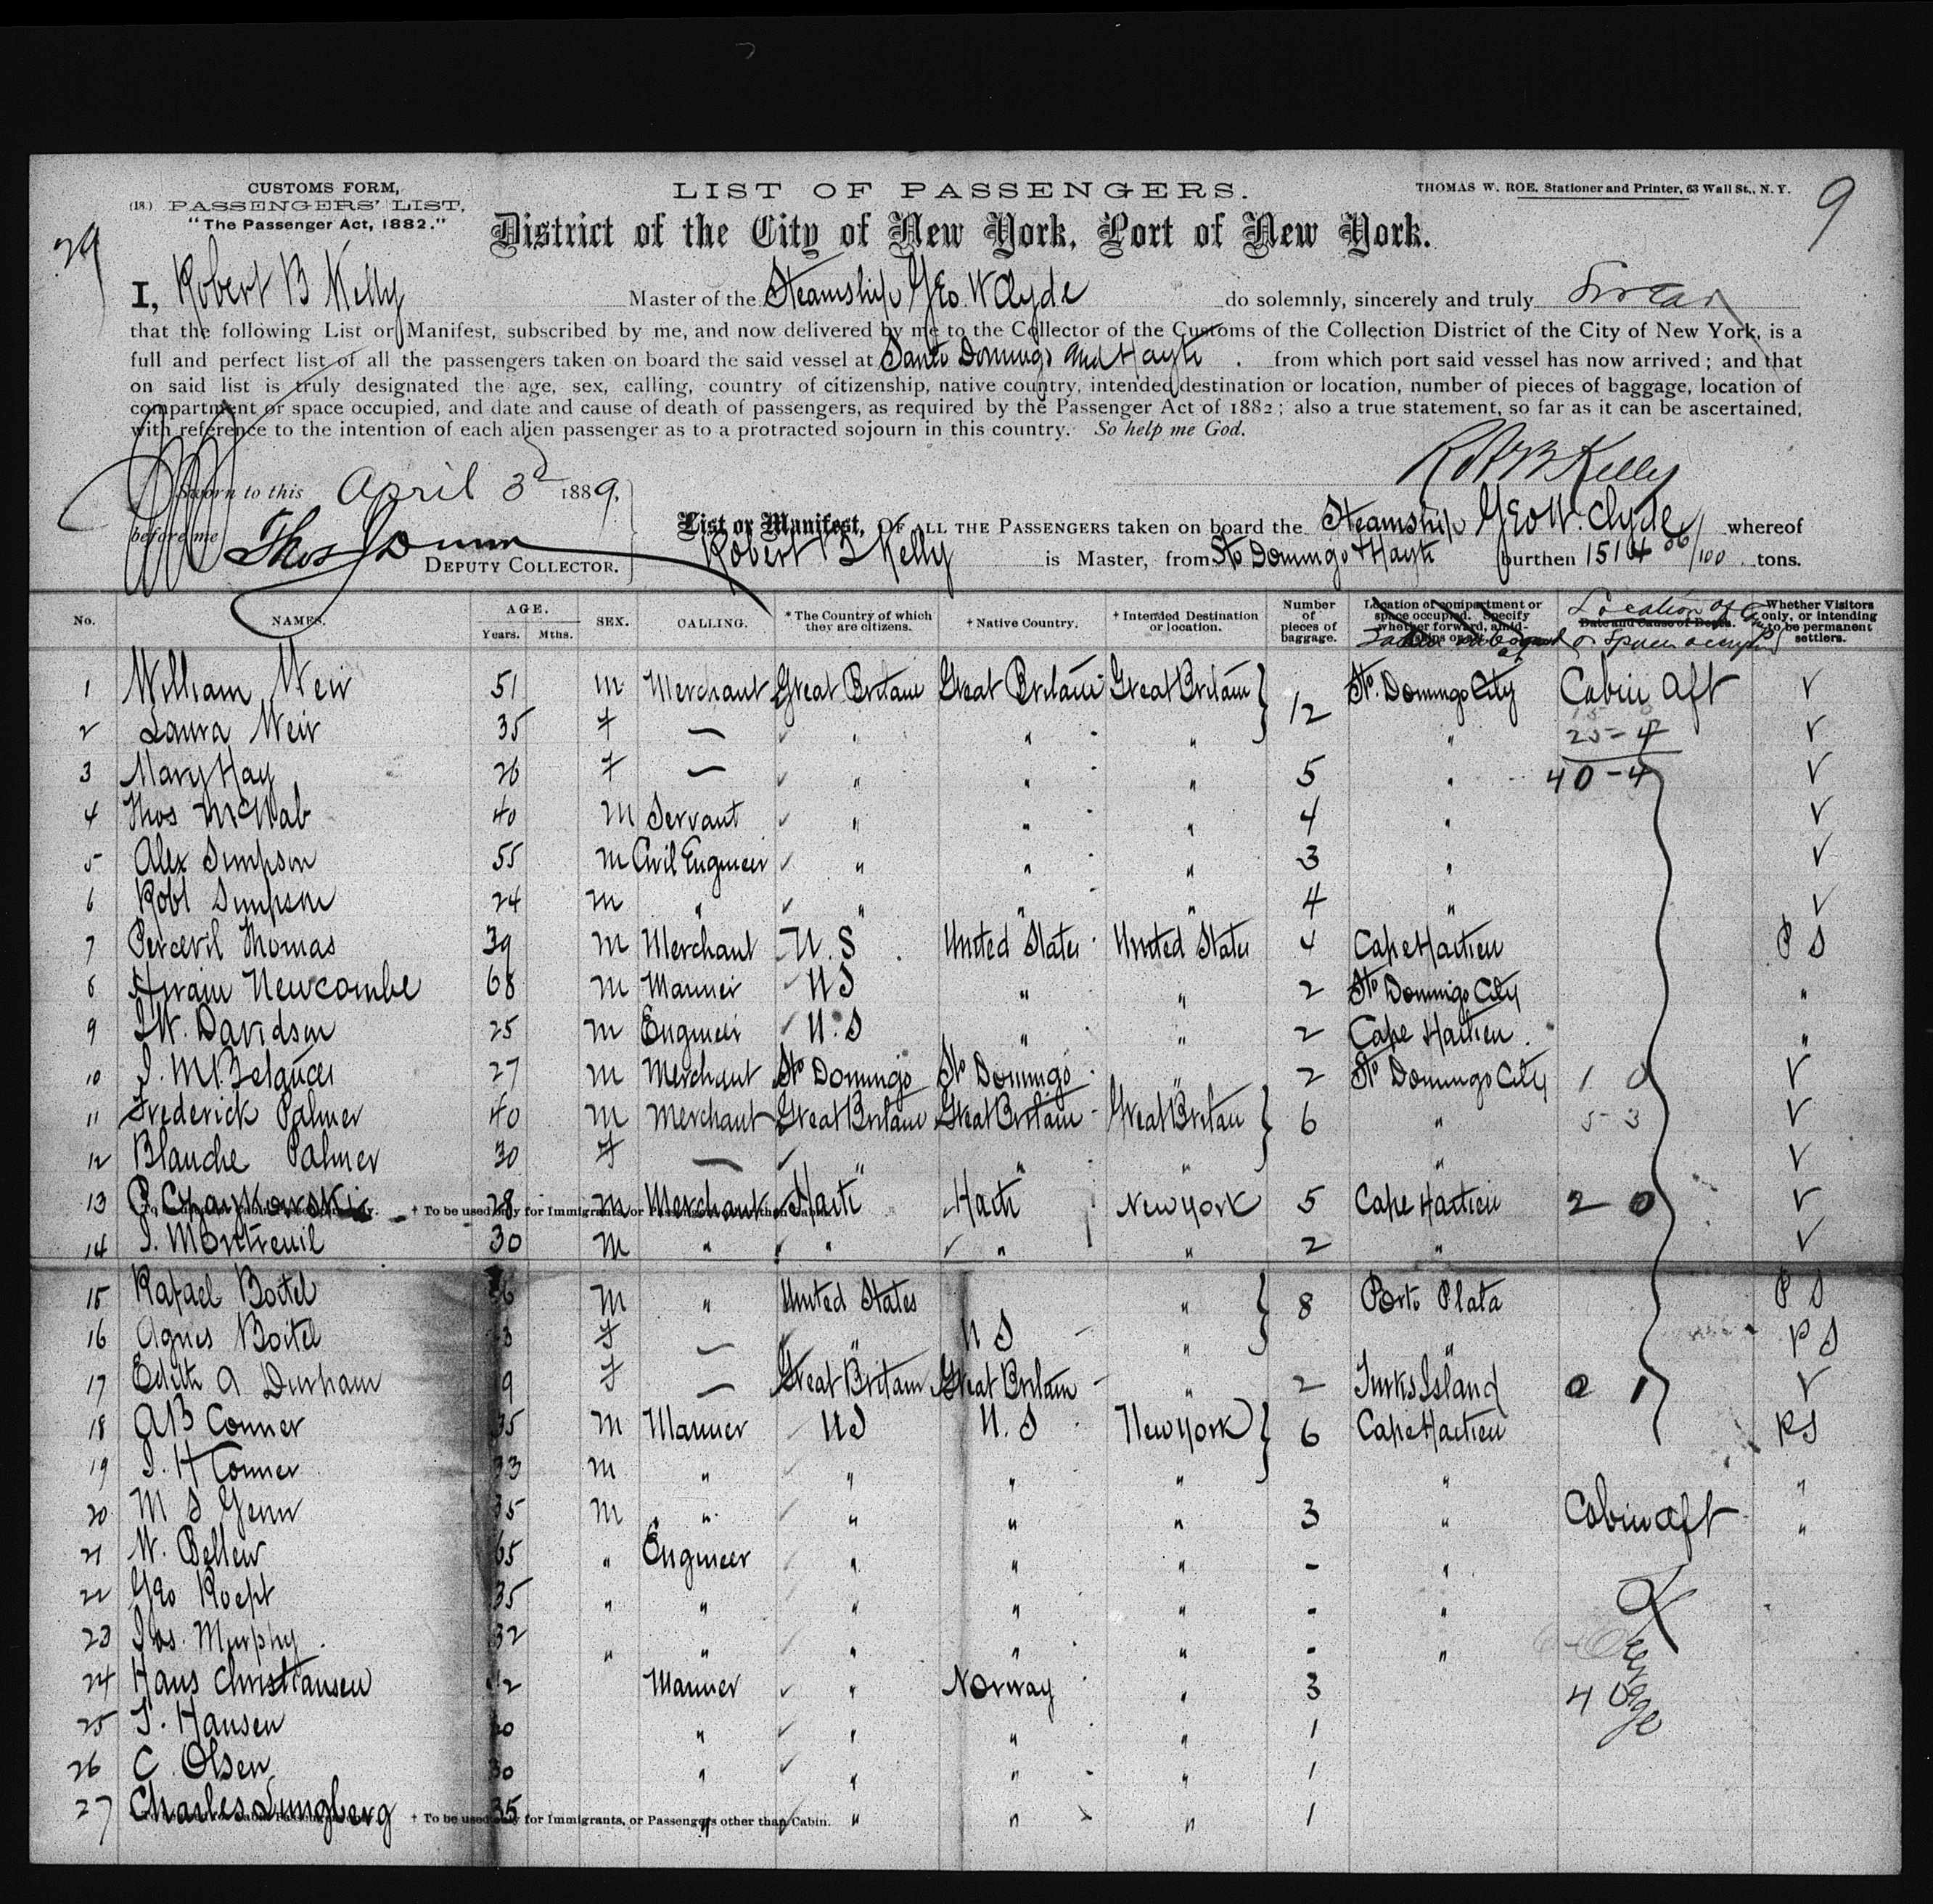 CUSTOMS FORM,
(18.) PASSENGERS' LIST,
"The Passenger Act, 1882."
LIST OF PASSENGERS.
THOMAS W. ROE, Stationer and Printer, 63 Wall St., N. Y.
9
29
District of the City of New York, Port of New York.
I, Robert B Kelly Master of the Steamship Geo. W Clyde do solemnly, sincerely and truly Swear
that the following List or Manifest, subscribed by me, and now delivered by me to the Collector of the Customs of the Collection District of the City of New York, is a
full and perfect list of all the passengers taken on board the said vessel at Santo Domingo and Hayti . from which port said vessel has now arrived; and that
on said list is truly designated the age, sex, calling, country of citizenship, native country, intended destination or location, number of pieces of baggage, location of
compartment or space occupied, and date and cause of death of passengers, as required by the Passenger Act of 1882; also a true statement, so far as it can be ascertained,
with reference to the intention of each alien passenger as to a protracted sojourn in this country. So help me God.
Robt B Kelly
Sworn to this April 3d 1889,
before me Thos Dunn
DEPUTY COLLECTOR.
List or Manifest, OF ALL THE PASSENGERS taken on board the Steamship Geo W. Clyde whereof
Robert B Kelly is Master, from Sto Domingo & Hayti burthen 1514 06/100 tons.
No. NAMES. AGE. Years. Mths. SEX. CALLING. * The Country of which they are citizens. † Native Country. † Intended Destination or location. Number of pieces of baggage. Location of compartment or space occupied. Specify whether forward, amidships or aft. Date and Cause of Death. Location of or space occupied Whether Visitors only, or intending to be permanent settlers.
1 William Weir 51 m Merchant Great Britain Great Britain Great Britain 12 Sto. Domingo City Cabin aft √
2 Laura Weir 35 f — " " " " 25-4 √
3 Mary Hay 26 f — " " " 5 " 40-4 √
4 Thos McNab 40 m Servant " " " 4 " √
5 Alex Simpson 55 m Civil Engineer " " " 3 " √
6 Robt Simpson 24 m " " " " 4 " √
7 Percevil Thomas 39 m Merchant U.S. United States United States 4 Cape Haitien P S
8 Hiram Newcombe 68 m Mariner US " " 2 Sto Domingo City "
9 J.W. Davidson 25 m Engineer U.S " " 2 Cape Haitien. "
10 27 m Merchant Sto Domingo Sto Domingo " 2 Sto Domingo City 1 0 √
11 Frederick Palmer 40 m Merchant Great Britain Great Britain Great Britain 6 " 5 3 √
12 Blanche Palmer 30 f — " " " " √
13 28 m Merchant Haiti Haiti New York 5 Cape Haitien 2 0 √
† To be used only for Immigrants, or Passengers other than Cabin.
14 J. Montreuil 30 m " " " " 2 " √
15 Rafael Boitel 6 m " United States " 8 Porto Plata P S
16 Agnes Boitel 3 f — " U S " " P S
17 Edith A Durham 9 f — Great Britain Great Britain " 2 Turks Island 0 1 √
18 A B Conner 35 m Mariner US U.S New York 6 Cape Haitien P S
19 J. H Conner 33 m " " " " " "
20 M S Genn 35 m " " " " 3 " Cabin aft "
21 W. Bellew 65 " Engineer " " " - "
22 Geo Roept 35 " " " " " - "
23 Jas. Murphy. 32 " " " " " - "
Steerage
24 Hans Christiansen 2 Mariner " Norway " 3 4 0
25 J. Hansen 0 " " " " 1
26 C Olsen 30 " " " " 1
27 Charles Lungberg 35 " " " " 1
† To be used only for Immigrants, or Passengers other than Cabin.